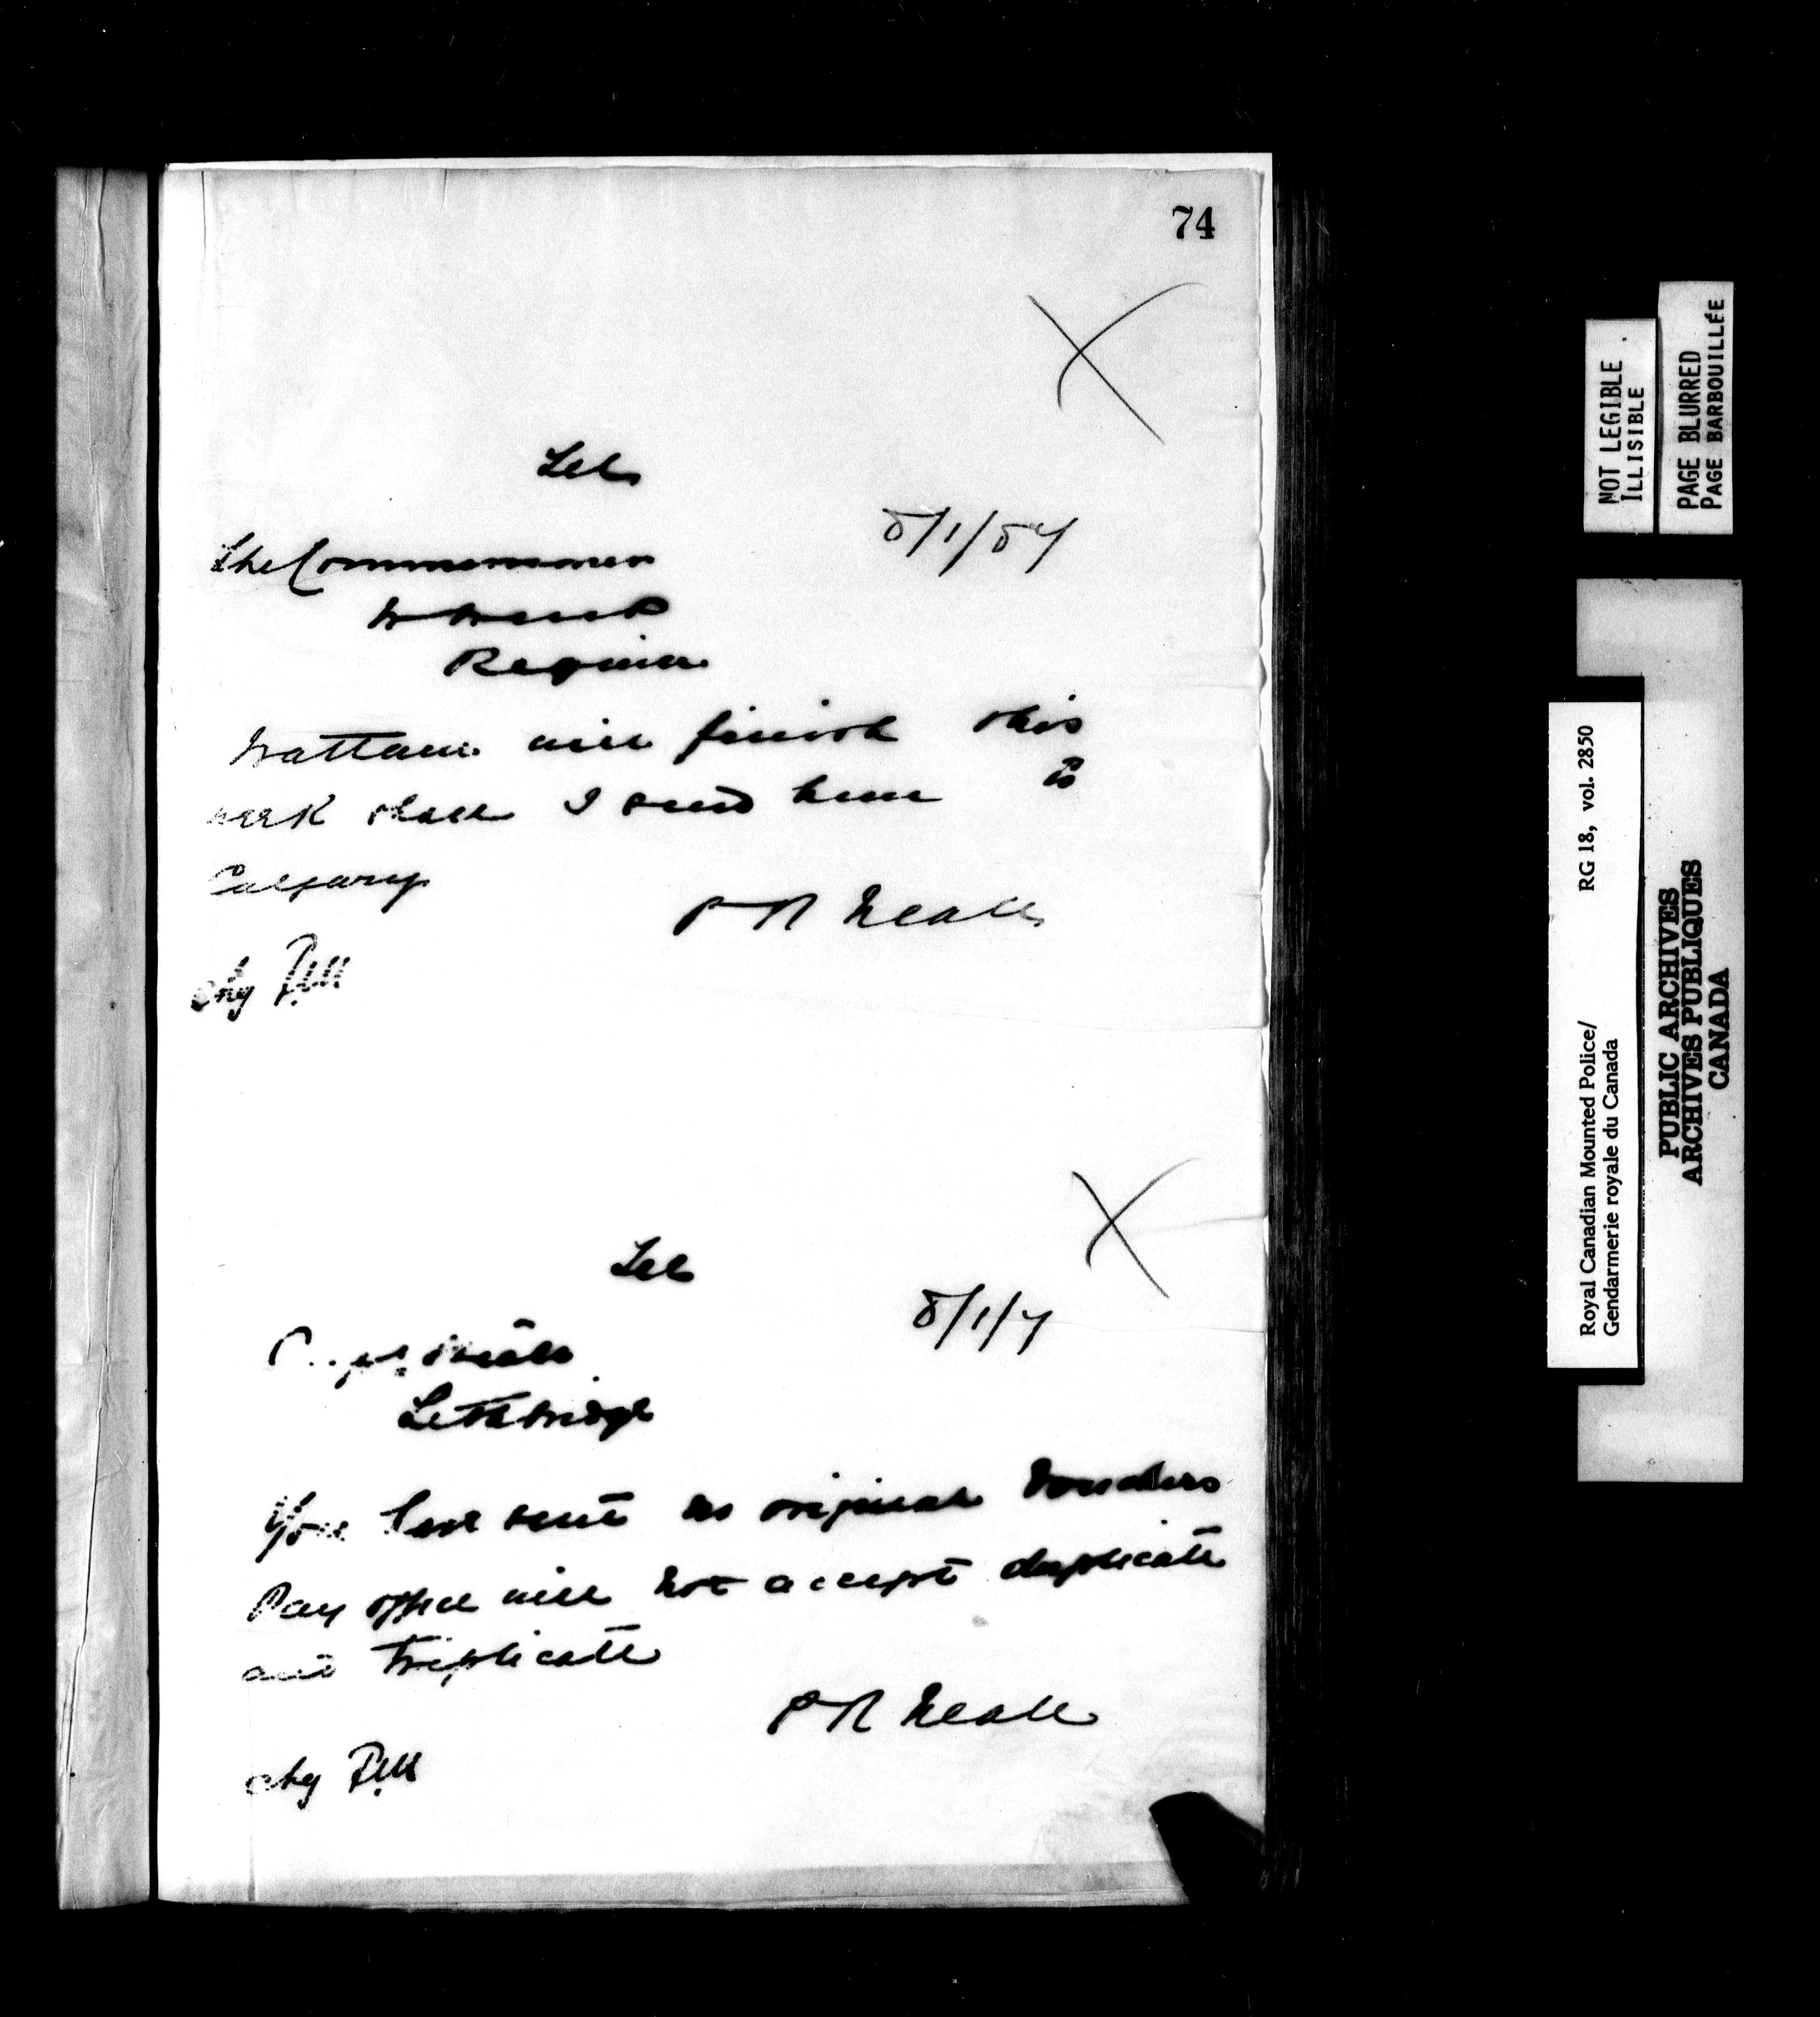 74
X
Tel
8/1/87
The Commissioner
N W M P
Regina
will finish this
week shall I send him to
Calgary
P R Neale
Chg
X
Tel
8/1/7
Lethbridge
You have sent no original Vouchers
Pay office will not accept duplicate
and triplicate
P R Neale
Chg
NOT LEGIBLE
ILLISIBLE
PAGE BLURRED
PAGE BARBOUILLÉE
Royal Canadian Mounted Police/ RG 18, vol. 2850
Gendarmerie royale du Canada
PUBLIC ARCHIVES
ARCHIVES PUBLIQUES
CANADA